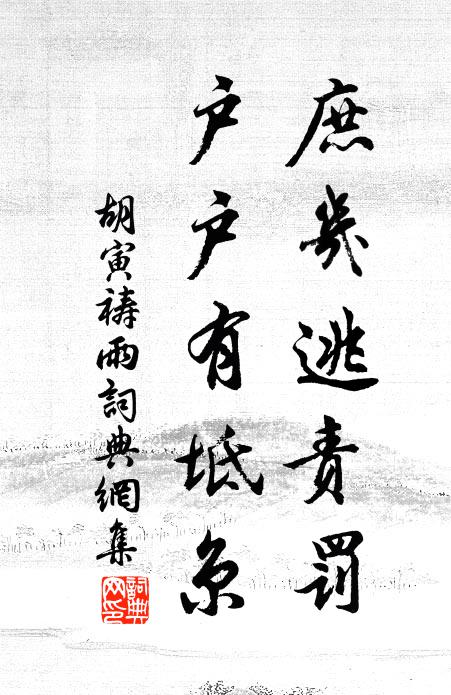 庶幾逃責罰
户户有坻京
胡寅禱雨詞典網集
詞典網印